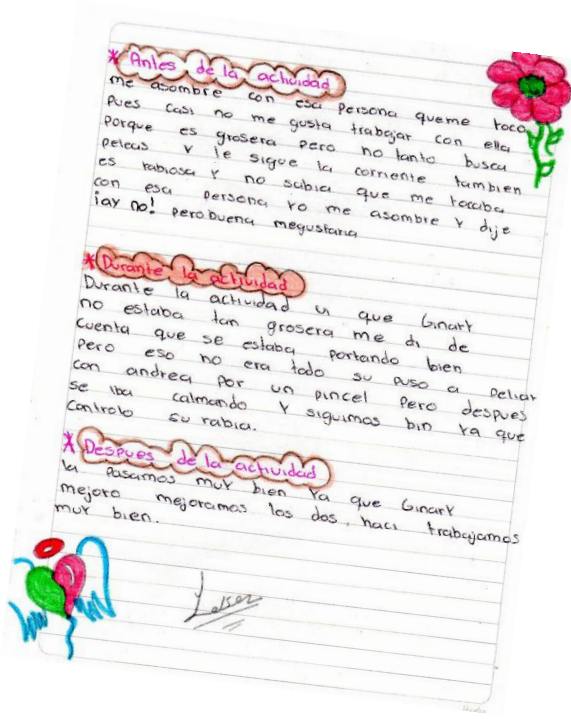 * Antes de la actividad
me asombre con esa persona queme toco
Pues casi no me gusta trabajar con ella
Porque es grosera pero no tanto busca
peleas y le sigue la corriente tambien
es rabiosa y no sabia que me tocaba
con esa persona yo me asombre y dije
¡ay no! pero buena megustaria
* Durante la actividad
Durante la actividad vi que Ginary
no estaba tan grosera me di de
Cuenta que se estaba portando bien
Pero eso no era todo su puso a peliar
con andrea por un pincel pero despues
se iba calmando y siguimos bin ya que
Controlo su rabia.
* Despues de la actividad
la pasamos muy bien ya que Ginary
mejoro mejoramos los dos, haci trabajamos
muy bien.